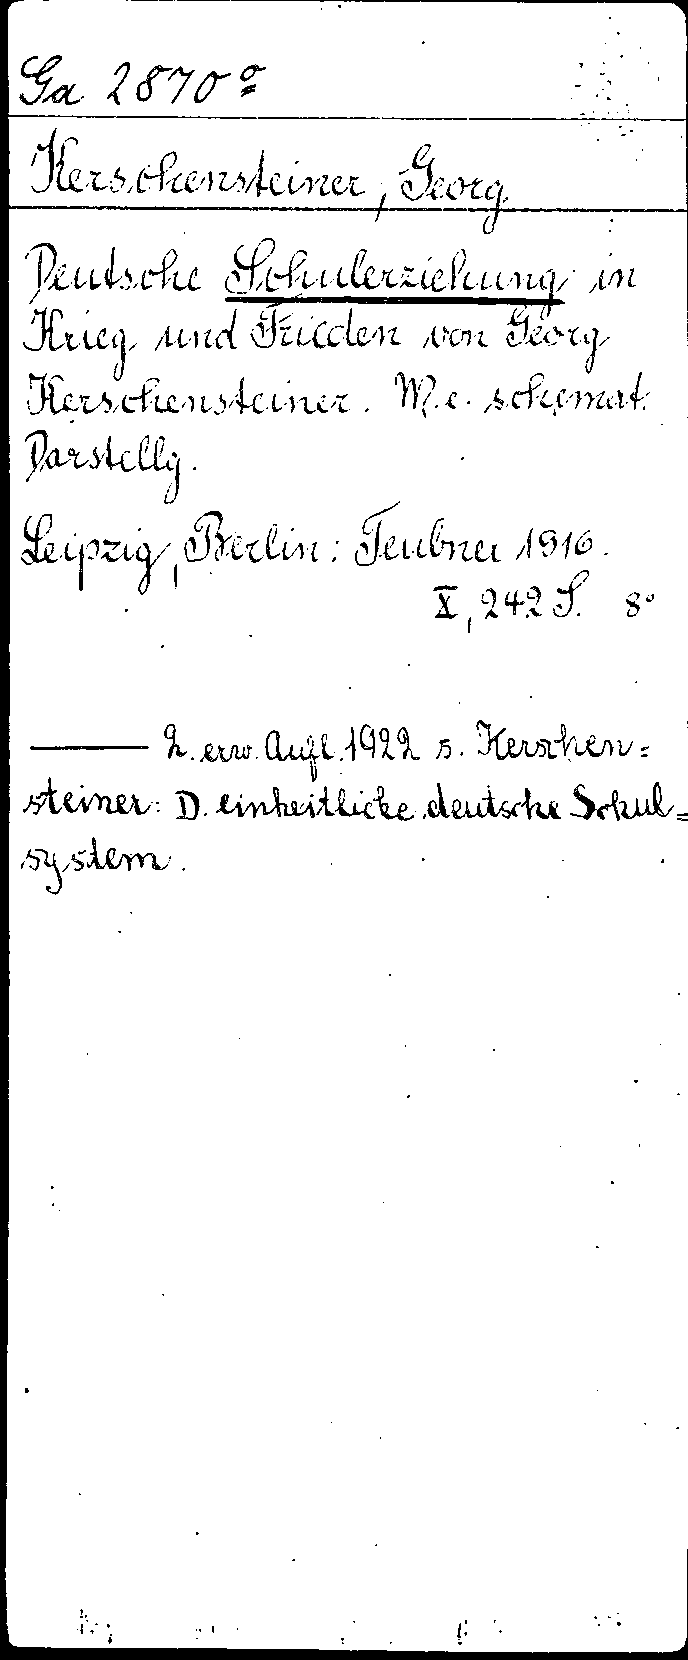 Ga 2870 º
Kerschensteiner, Georg
Deutsche Schulerziehung in
Krieg und Frieden von Georg
Kerschensteiner. M. e. schemat.
Darstellg.
Leipzig, Berlin: Teubner 1916.
X, 242 S. 8°
—— 2. erw. Aufl. 1922 s. Kerschen=
steiner: D. einheitliche deutsche Schul=
system.